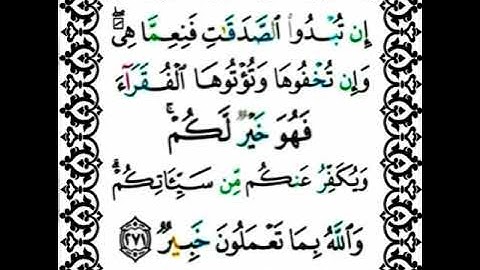 إِن تُبْدُوا۟ ٱلصَّدَقَـٰتِ فَنِعِمَّا هِىَ ۖ
وَإِن تُخْفُوهَا وَتُؤْتُوهَا ٱلْفُقَرَآءَ
فَهُوَ خَيْرٌ لَّكُمْ ۚ
وَيُكَفِّرُ عَنكُم مِّن سَيِّـَٔاتِكُمْ ۗ
وَٱللَّهُ بِمَا تَعْمَلُونَ خَبِيرٌ ٢٧١